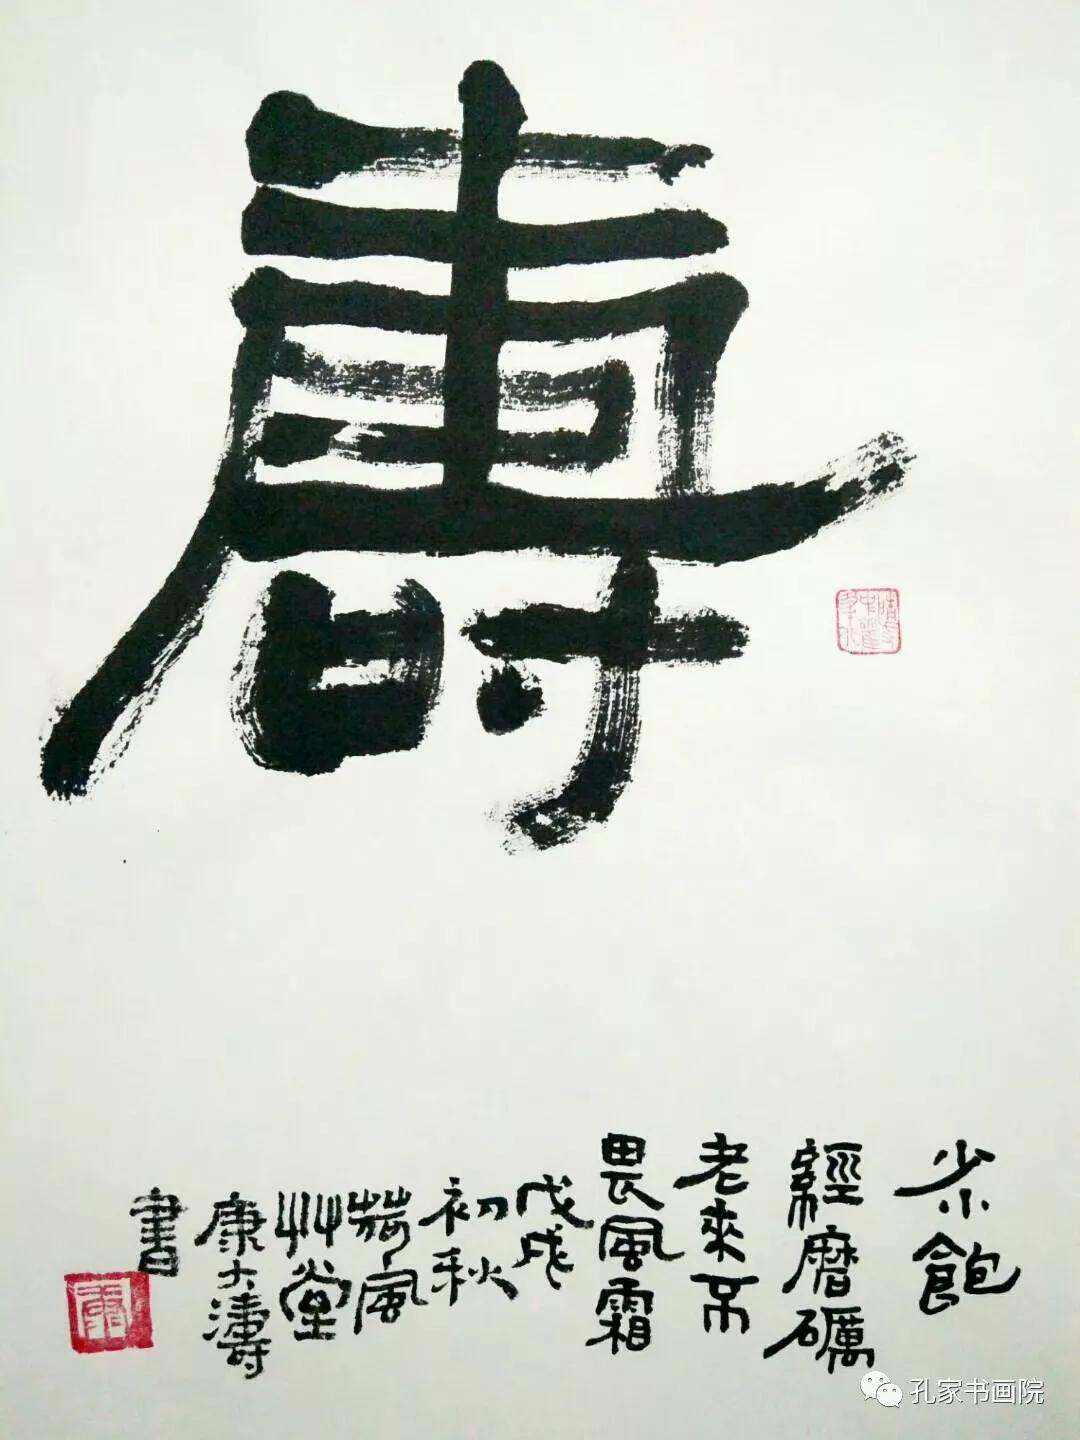 壽
少小飽
經磨礪
老來不
畏風霜
戊戌
初秋
荷風
艸堂
康大濤
書
孔家书画院